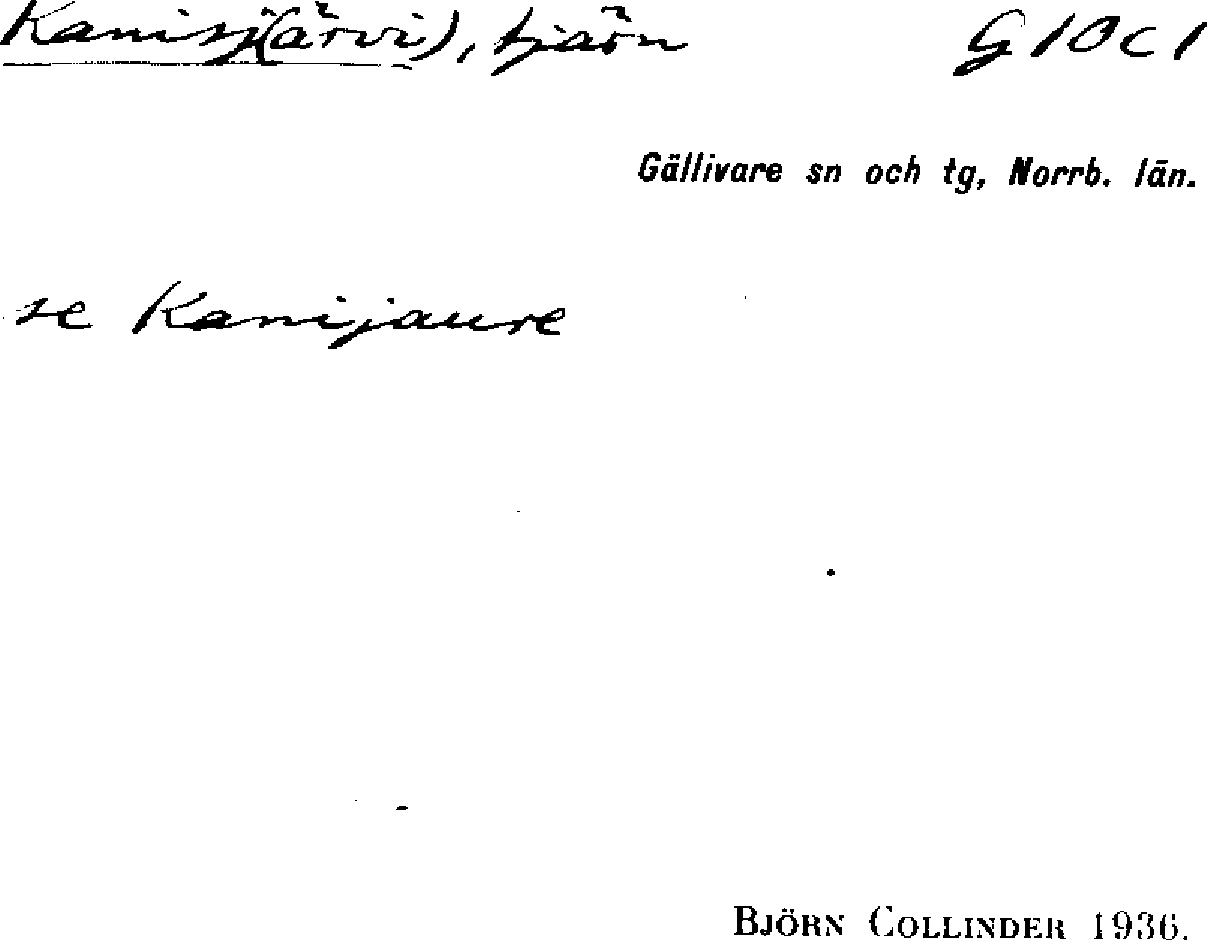 Kanisj(ärvi), tjärn G10c1
Gällivare sn och tg, Norrb. län.
se Kanijaure
BJÖRN COLLINDER 1936.